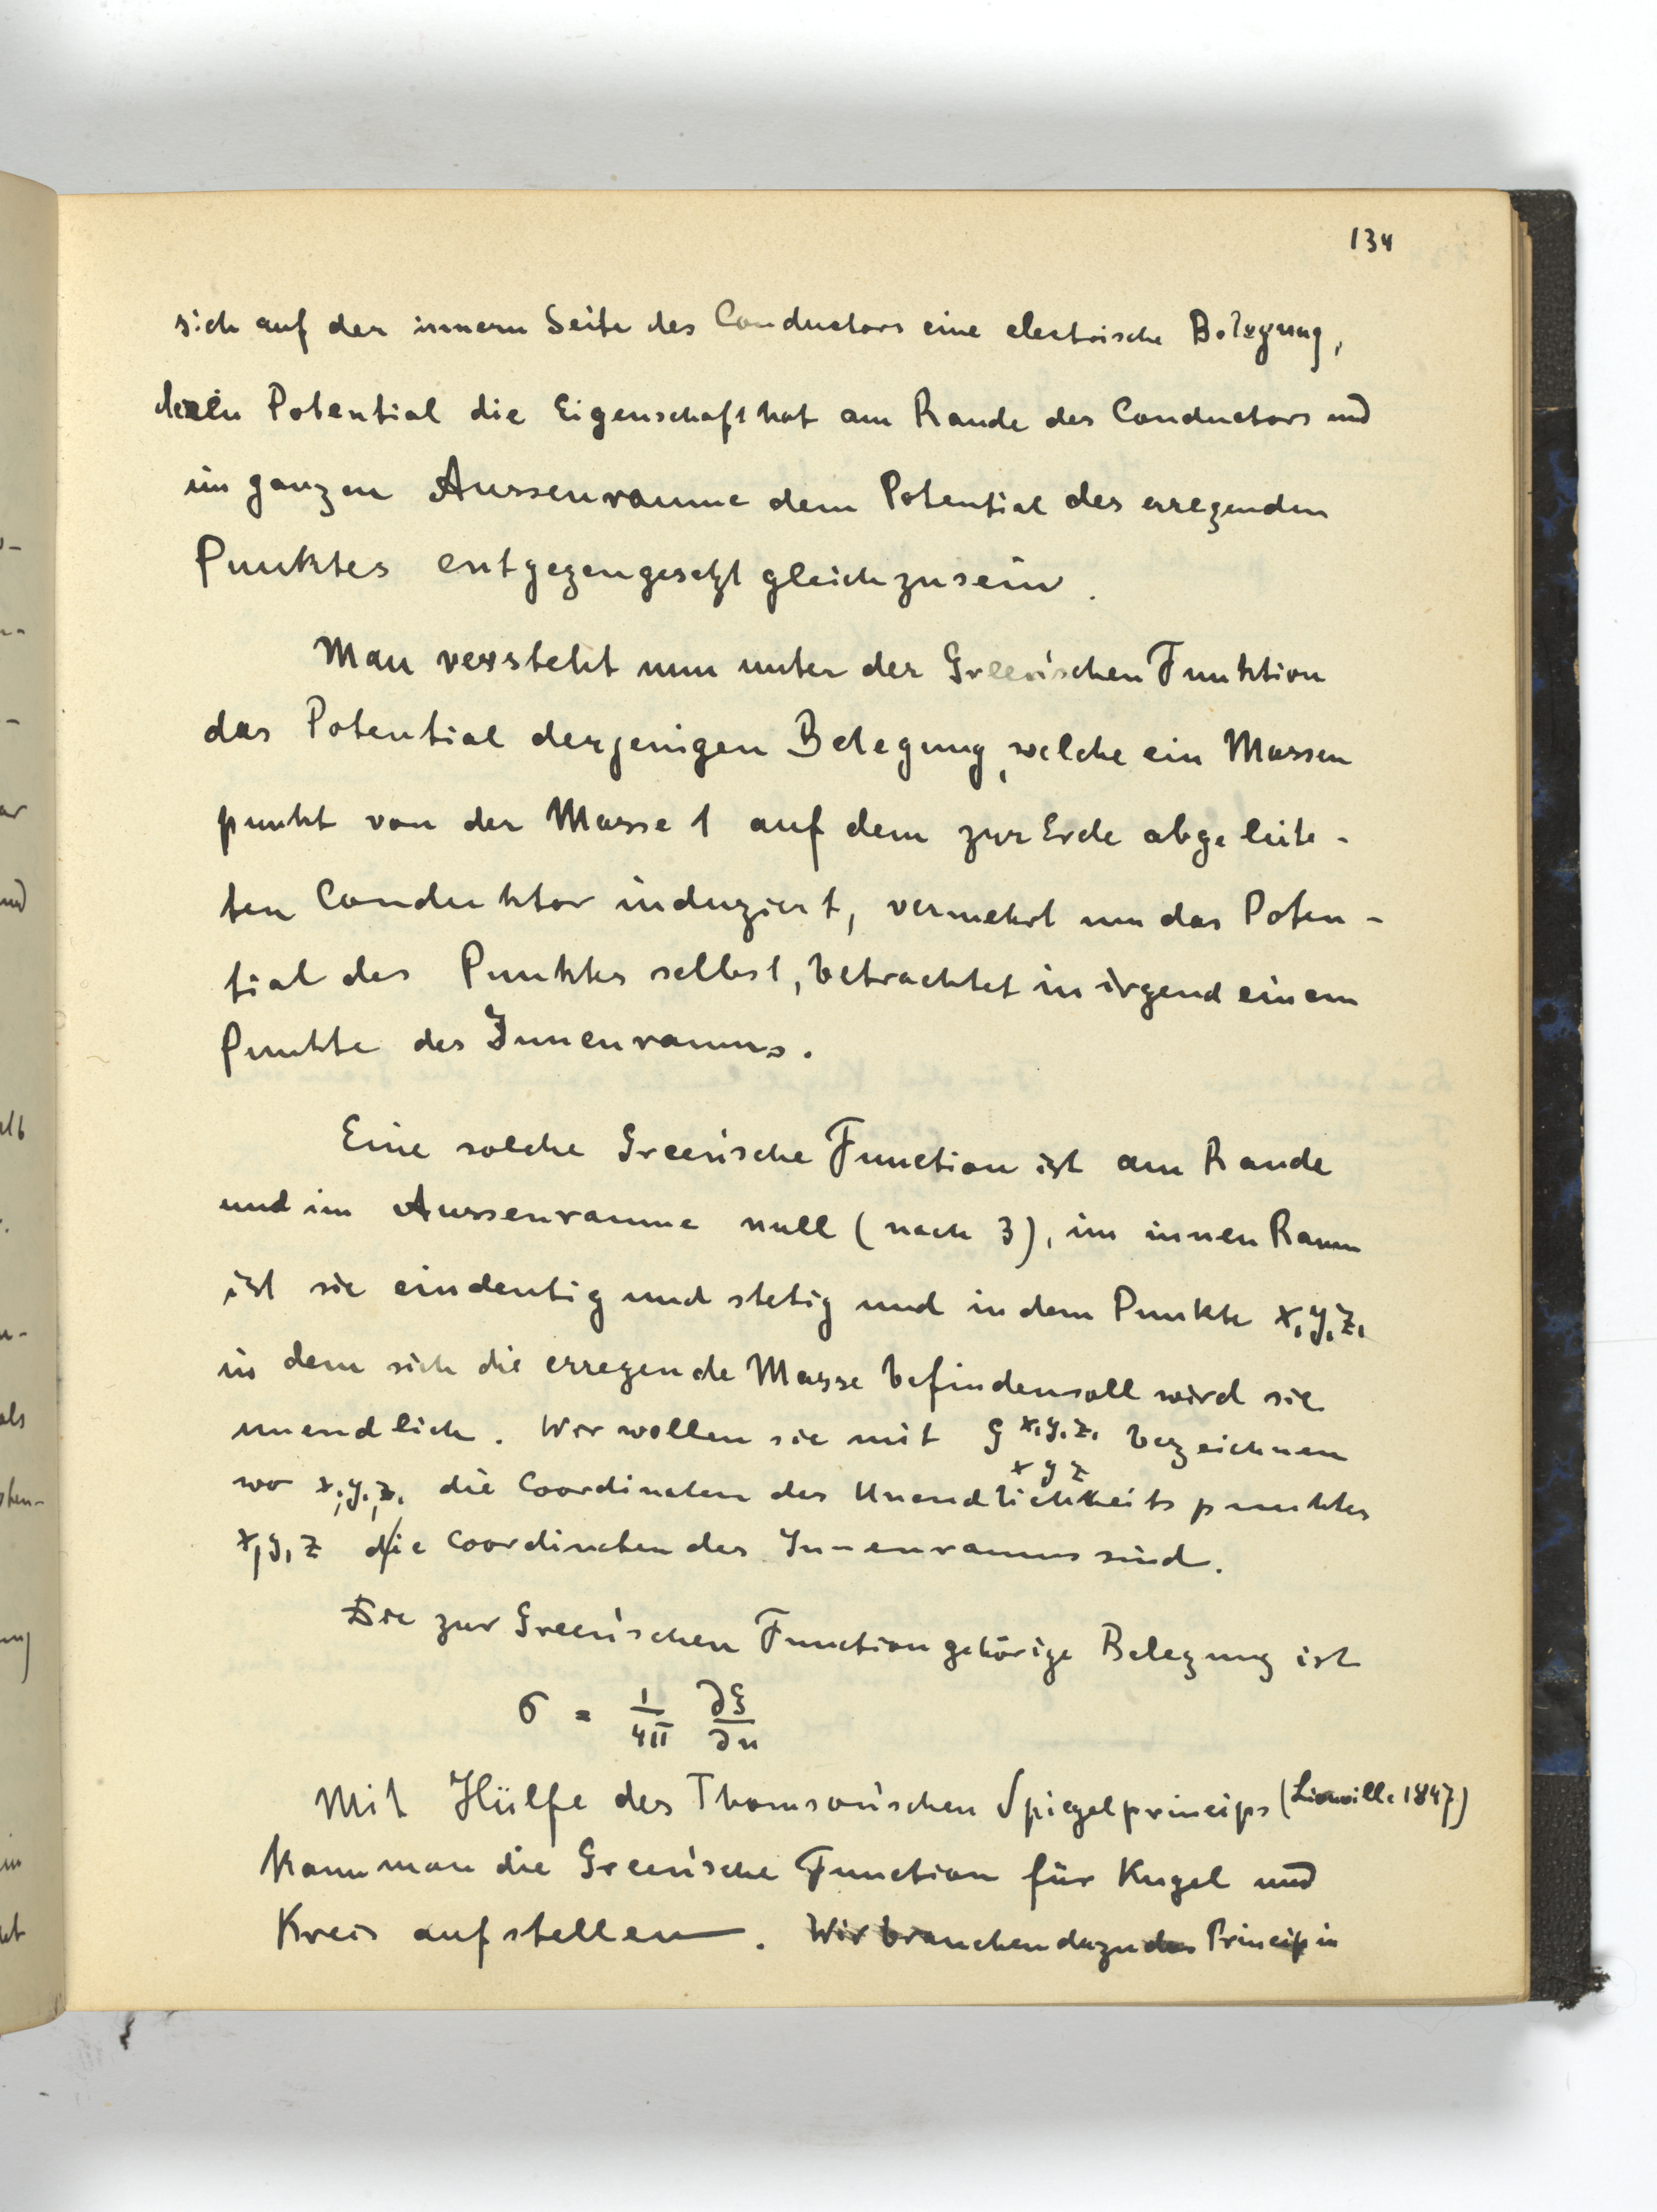 134
sich auf der innern Seite des Conductors eine electrische Belegung,
deren Potential die Eigenschaft hat am Rande des Conductors und
im ganzen Aussenraume dem Potential des erregenden
Punktes entgegengesetzt gleich zu sein.
Man versteht nun unter der Green'schen Funktion
das Potential derjenigen Belegung, welche ein Massen
punkt von der Masse 1 auf dem zur Erde abgeleite-
ten Conduktor induziert, vermehrt um das Poten-
tial des Punktes selbst, betrachtet in irgend einem
Punkte des Innenraums.
Eine solche Green'sche Function ist am Rande
und im Aussenraume null (nach 3), im innen Raum
ist sie eindeutig und stetig und in dem Punkte x₁y₁z₁
in dem sich die erregende Masse befinden soll wird sie
unendlich. Wir wollen sie mit G x₁y₁z₁ bezeichnen
x y z
wo x₁, y₁, z₁ die Coordinaten des Unendlichkeitspunktes
x, y, z die Coordinaten des Innenraums sind.
Die zur Green'schen Function gehörige Belegung ist
σ = 1/4π ∂G/∂n
Mit Hülfe des Thomson'schen Spiegelprincips (Liouville 1847)
kann man die Green'sche Function für Kugel und
Kreis aufstellen. Wir brauchen dazu das Princip in